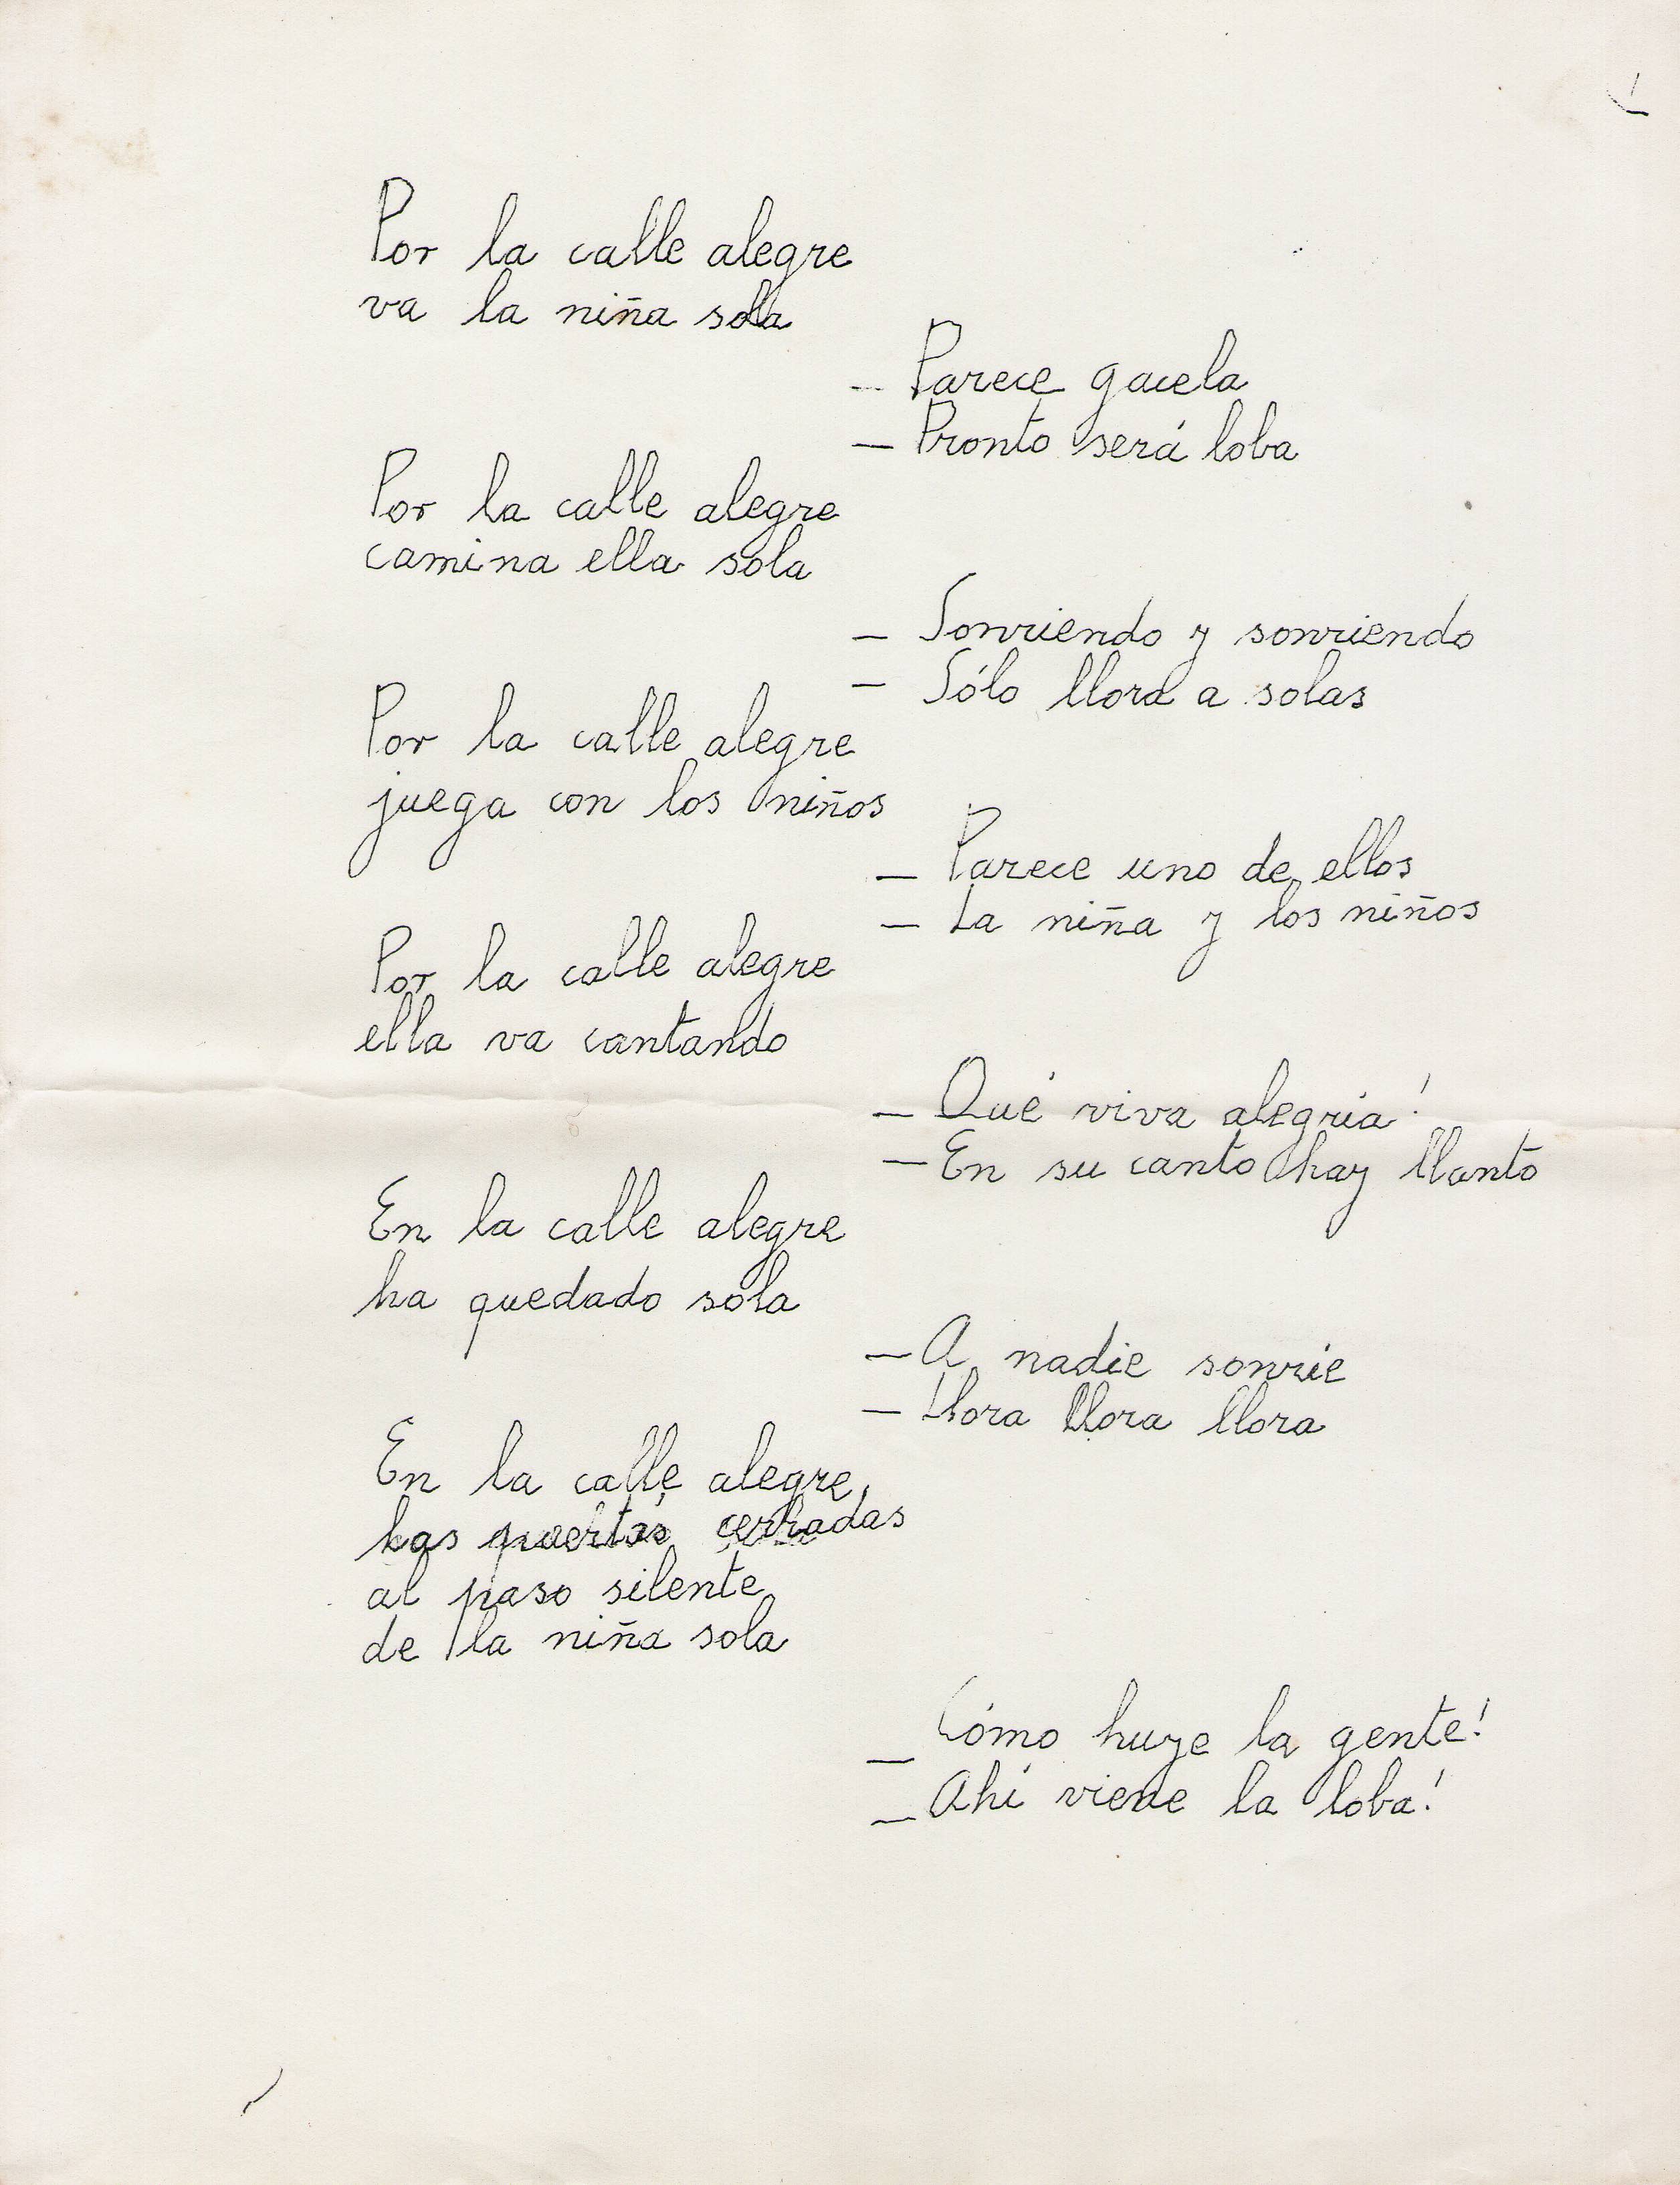 Por la calle alegre
va la niña sola
- Parece gacela
- Pronto será loba
Por la calle alegre
camina ella sola
- Sonriendo y sonriendo
- Sólo llora a solas
Por la calle alegre
juega con los niños
- Parece uno de ellos
- La niña y los niños
Por la calle alegre
ella va cantando
- Qué viva alegría!
- En su canto hay llanto
En la calle alegre
ha quedado sola
- A nadie sonríe
- Llora llora llora
En la calle alegre,
las puertas cerradas
al paso silente
de la niña sola
- Cómo huye la gente!
- Ahí viene la loba!